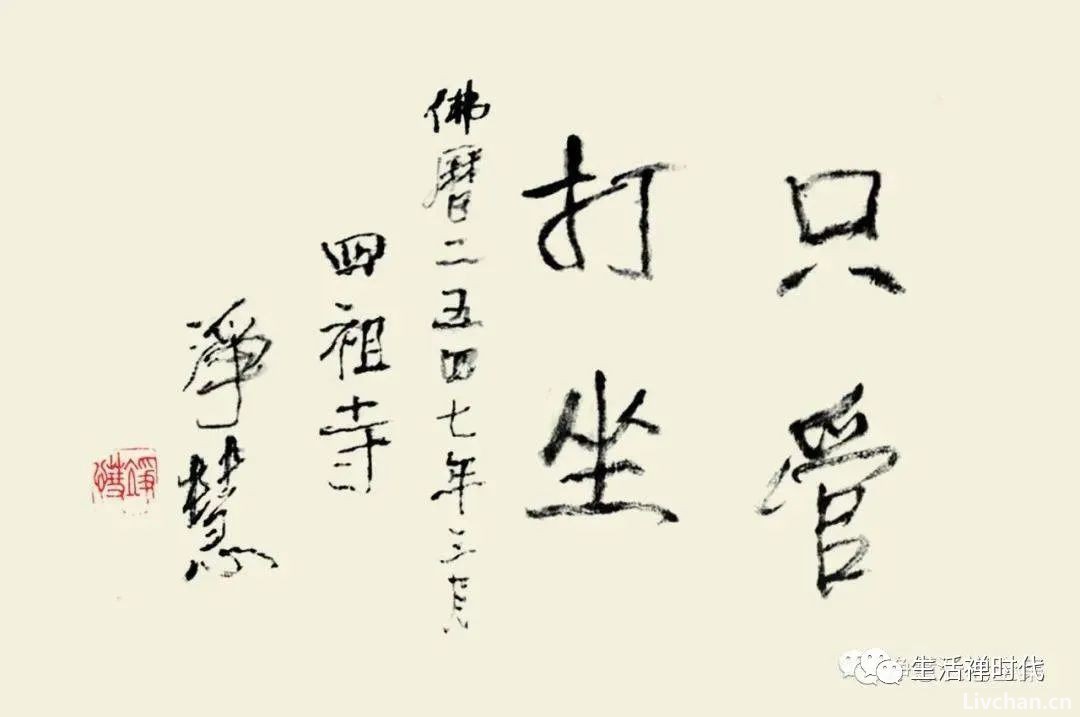 只管
打坐
佛曆二五四七年三月
四祖寺
淨慧
生活禅时代
Livchan.cn